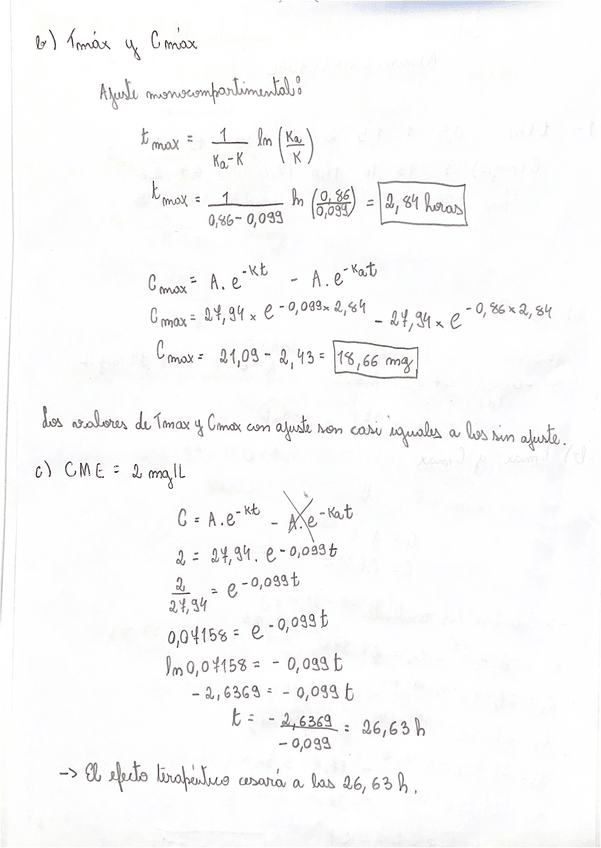 b) Tmáx y Cmáx
Ajuste monocompartimental:
t max = 1/(Ka-K) ln (Ka/K)
t max = 1/(0,86-0,099) ln (0,86/0,099) = 2,84 horas
Cmax = A. e^-Kt - A. e^-Kat
Cmax = 27,94 x e^-0,099x2,84 - 27,94 x e^-0,86x2,84
Cmax = 21,09 - 2,43 = 18,66 mg
Los valores de Tmax y Cmax con ajuste son casi iguales a los sin ajuste.
c) CME = 2 mg/L
C = A. e^-Kt - A. e^-Kat
2 = 27,94. e^-0,099t
2/27,94 = e^-0,099t
0,07158 = e^-0,099t
ln 0,07158 = -0,099t
-2,6369 = -0,099t
t = -2,6369/-0,099 = 26,63 h
-> El efecto terapéutico cesará a las 26,63 h.